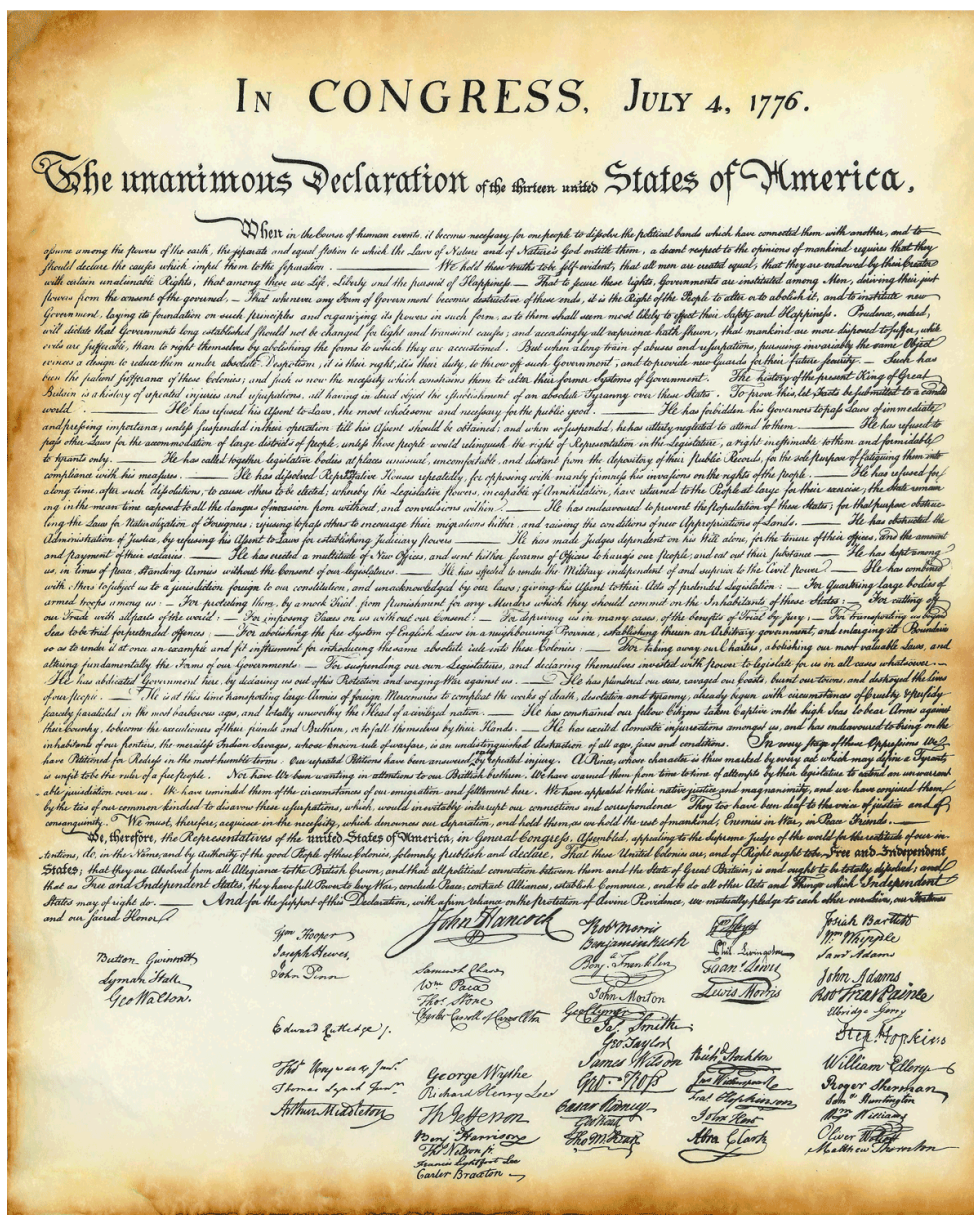 IN CONGRESS, JULY 4, 1776.
The unanimous Declaration of the thirteen united States of America,
When in the Course of human events, it becomes necessary for one people to dissolve the political bands which have connected them with another, and to
assume among the powers of the earth, the separate and equal station to which the Laws of Nature and of Nature's God entitle them, a decent respect to the opinions of mankind requires that they
should declare the causes which impel them to the separation. — We hold these truths to be self-evident, that all men are created equal, that they are endowed by their Creator
with certain unalienable Rights, that among these are Life, Liberty and the pursuit of Happiness — That to secure these rights, Governments are instituted among Men, deriving their just
powers from the consent of the governed, — That whenever any Form of Government becomes destructive of these ends, it is the Right of the People to alter or to abolish it, and to institute new
Government, laying its foundation on such principles and organizing its powers in such form, as to them shall seem most likely to effect their Safety and Happiness. Prudence, indeed,
will dictate that Governments long established should not be changed for light and transient causes; and accordingly all experience hath shewn, that mankind are more disposed to suffer, while
evils are sufferable, than to right themselves by abolishing the forms to which they are accustomed. But when a long train of abuses and usurpations, pursuing invariably the same Object
evinces a design to reduce them under absolute Despotism, it is their right, it is their duty, to throw off such Government, and to provide new Guards for their future security. — Such has
been the patient sufferance of these Colonies; and such is now the necessity which constrains them to alter their former Systems of Government. The history of the present King of Great
Britain is a history of repeated injuries and usurpations, all having in direct object the establishment of an absolute Tyranny over these States. To prove this, let Facts be submitted to a candid
world. — He has refused his Assent to Laws, the most wholesome and necessary for the public good. — He has forbidden his Governors to pass Laws of immediate
and pressing importance, unless suspended in their operation till his Assent should be obtained; and when so suspended, he has utterly neglected to attend to them. — He has refused to
pass other Laws for the accommodation of large districts of people, unless those people would relinquish the right of Representation in the Legislature, a right inestimable to them and formidable
to tyrants only. — He has called together legislative bodies at places unusual, uncomfortable, and distant from the depository of their Public Records, for the sole purpose of fatiguing them into
compliance with his measures. — He has dissolved Representative Houses repeatedly, for opposing with manly firmness his invasions on the rights of the people. — He has refused for
a long time, after such dissolutions, to cause others to be elected; whereby the Legislative powers, incapable of Annihilation, have returned to the People at large for their exercise; the State remain
ing in the mean time exposed to all the dangers of invasion from without, and convulsions within. — He has endeavoured to prevent the population of these States; for that purpose obstruc-
ting the Laws for Naturalization of Foreigners; refusing to pass others to encourage their migrations hither, and raising the conditions of new Appropriations of Lands. — He has obstructed the
Administration of Justice, by refusing his Assent to Laws for establishing Judiciary powers — He has made Judges dependent on his Will alone, for the tenure of their offices, and the amount
and payment of their salaries. — He has erected a multitude of New Offices, and sent hither swarms of Officers to harrass our people, and eat out their substance — He has kept among
us, in times of peace, Standing Armies without the Consent of our legislatures. — He has affected to render the Military independent of and superior to the Civil power — He has combined
with others to subject us to a jurisdiction foreign to our constitution, and unacknowledged by our laws; giving his Assent to their Acts of pretended Legislation: — For Quartering large bodies of
armed troops among us: — For protecting them, by a mock Trial, from punishment for any Murders which they should commit on the Inhabitants of these States: — For cutting off
our Trade with all parts of the world: — For imposing Taxes on us without our Consent: — For depriving us in many cases, of the benefits of Trial by jury; — For transporting us beyond
Seas to be tried for pretended offences; — For abolishing the free System of English Laws in a neighbouring Province, establishing therein an Arbitrary government, and enlarging its Boundaries
so as to render it at once an example and fit instrument for introducing the same absolute rule into these Colonies: — For taking away our Charters, abolishing our most valuable Laws, and
altering fundamentally the Forms of our Governments: — For suspending our own Legislatures, and declaring themselves invested with power to legislate for us in all cases whatsoever. —
He has abdicated Government here, by declaring us out of his Protection and waging War against us. — He has plundered our seas, ravaged our Coasts, burnt our towns, and destroyed the lives
of our people. — He is at this time transporting large Armies of foreign Mercenaries to compleat the works of death, desolation and tyranny, already begun with circumstances of Cruelty & perfidy
scarcely paralleled in the most barbarous ages, and totally unworthy the Head of a civilized nation. — He has constrained our fellow Citizens taken Captive on the high Seas to bear Arms against
their Country, to become the executioners of their friends and Brethren, or to fall themselves by their Hands. — He has excited domestic insurrections amongst us, and has endeavoured to bring on the
inhabitants of our frontiers, the merciless Indian Savages, whose known rule of warfare, is an undistinguished destruction of all ages, sexes and conditions. In every stage of these Oppressions We
have Petitioned for Redress in the most humble terms: Our repeated Petitions have been answered only by repeated injury. A Prince, whose character is thus marked by every act which may define a Tyrant,
is unfit to be the ruler of a free people. Nor have We been wanting in attentions to our Brittish brethren. We have warned them from time to time of attempts by their legislature to extend an unwarrant
able jurisdiction over us. We have reminded them of the circumstances of our emigration and settlement here. We have appealed to their native justice and magnanimity, and we have conjured them
by the ties of our common kindred to disavow these usurpations, which, would inevitably interrupt our connections and correspondence They too have been deaf to the voice of justice and of
consanguinity. We must, therefore, acquiesce in the necessity, which denounces our Separation, and hold them, as we hold the rest of mankind, Enemies in War, in Peace Friends. —
We, therefore, the Representatives of the united States of America, in General Congress, Assembled, appealing to the Supreme Judge of the world for the rectitude of our in-
tentions, do, in the Name, and by Authority of the good People of these Colonies, solemnly publish and declare, That these United Colonies are, and of Right ought to be Free and Independent
States; that they are Absolved from all Allegiance to the British Crown, and that all political connection between them and the State of Great Britain, is and ought to be totally dissolved; and
that as Free and Independent States, they have full Power to levy War, conclude Peace, contract Alliances, establish Commerce, and to do all other Acts and Things which Independent
States may of right do. — And for the support of this Declaration, with a firm reliance on the Protection of divine Providence, we mutually pledge to each other our Lives, our Fortunes
and our sacred Honor.
John Hancock
Button Gwinnett
Lyman Hall
Geo Walton.
Wm Hooper
Joseph Hewes,
John Penn
Edward Rutledge /.
Thos Heyward Junr.
Thomas Lynch Junr.
Arthur Middleton
Samuel Chase
Wm Paca
Thos Stone
Charles Carroll of Carrollton
George Wythe
Richard Henry Lee
Th Jefferson
Benj Harrison
Thos Nelson jr.
Francis Lightfoot Lee
Carter Braxton
Robt Morris
Benjamin Rush
Benja Franklin
John Morton
Geo Clymer
Jas Smith
Geo. Taylor
James Wilson
Geo. Ross
Caesar Rodney
Geo Read
Tho M:Kean
Wm Floyd
Phil. Livingston
Frans Lewis
Lewis Morris
Richd Stockton
Jno Witherspoon
Fras Hopkinson
John Hart
Abra Clark
Josiah Bartlett
Wm Whipple
Saml Adams
John Adams
Robt Treat Paine
Elbridge Gerry
Step Hopkins
William Ellery
Roger Sherman
Saml Huntington
Wm Williams
Oliver Wolcott
Matthew Thornton